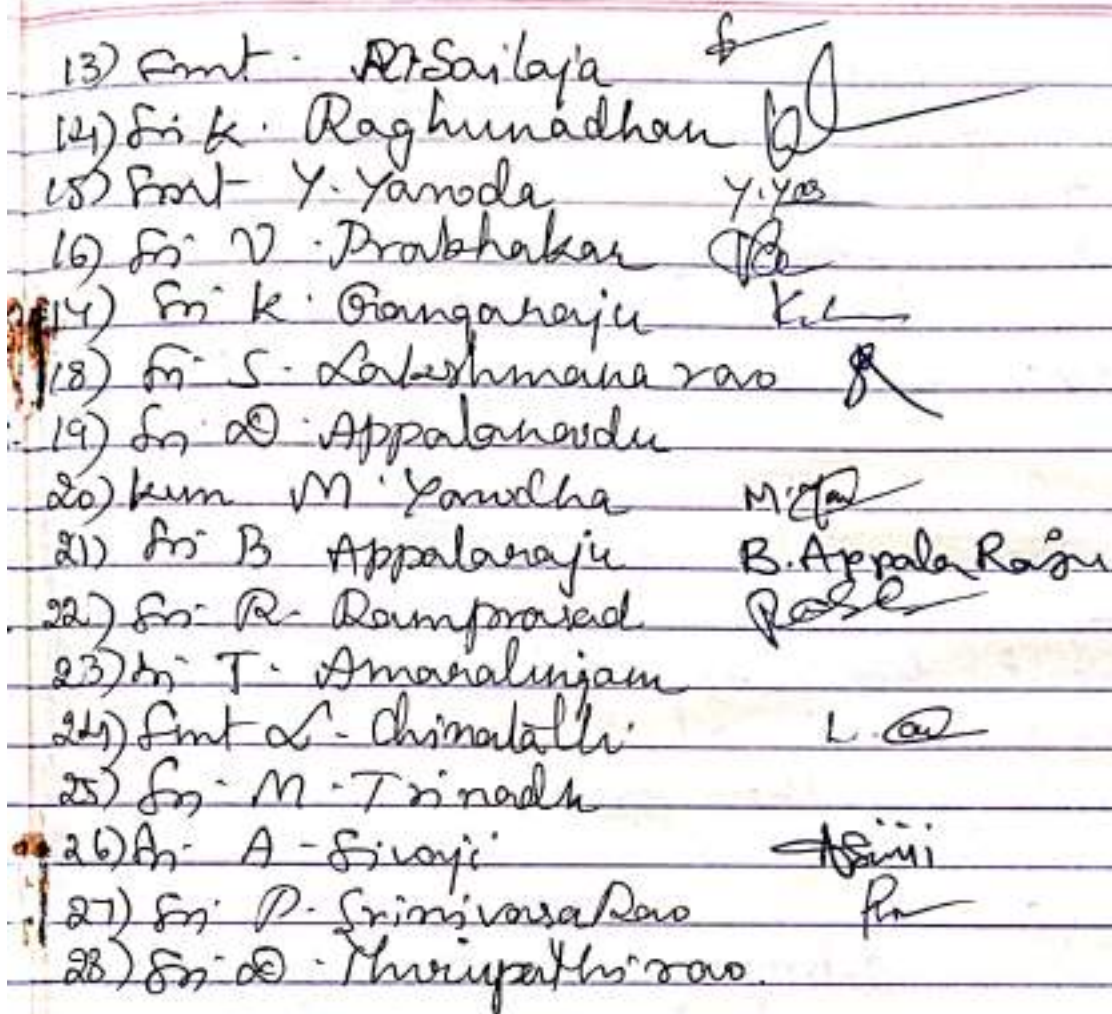 13) Smt. Sailaja
14) Sri K. Raghunadhan
15) Smt Y. Yasoda Y.Yas
16) Sri V. Prabhakar
17) Sri K. Gangaraju
18) Sri S. Lakeshmana rao
19) Sri D. Appalanaidu
20) Kum M. Yasodha
21) Sri B Appalaraju B. Appala Raju
22) Sri R. Ramprasad
23) Sri T. Amaralingam
24) Smt L. Chinatalli
25) Sri M. Trinadh
26) Sri A - Sivaji
27) Sri P. Srinivasa Rao
28) Sri D. Thirupathi rao.